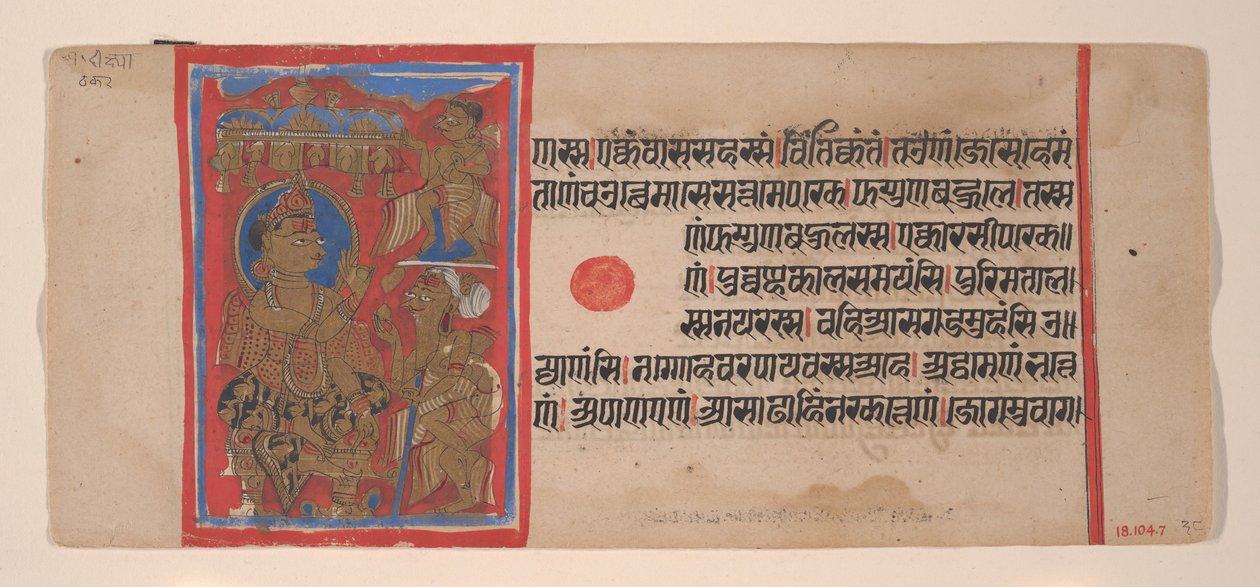 णस्स।एक्कंवाससहस्सं।वितिक्कंतं।तउणं।जेसेहेमं
ताणंचउत्थेमासेसत्तमेपरके।फग्गुणबहुले।तस्स
णंफग्गुणबहुलस्स।एक्कारसीपरके॥
णं।पुव्वण्हकालसमयंसि।पुरिमताल।
स्सनयरस्स।बहिआसगडमुहंसिउ॥
ज्जाणंसि।नग्गोहवरपायवस्सअहे।अट्ठमेणंभत्ते
णं।अपाणएणं।आसाढाहिंनरकत्तेणं।जोगमुवाग।
18.104.7 ३८